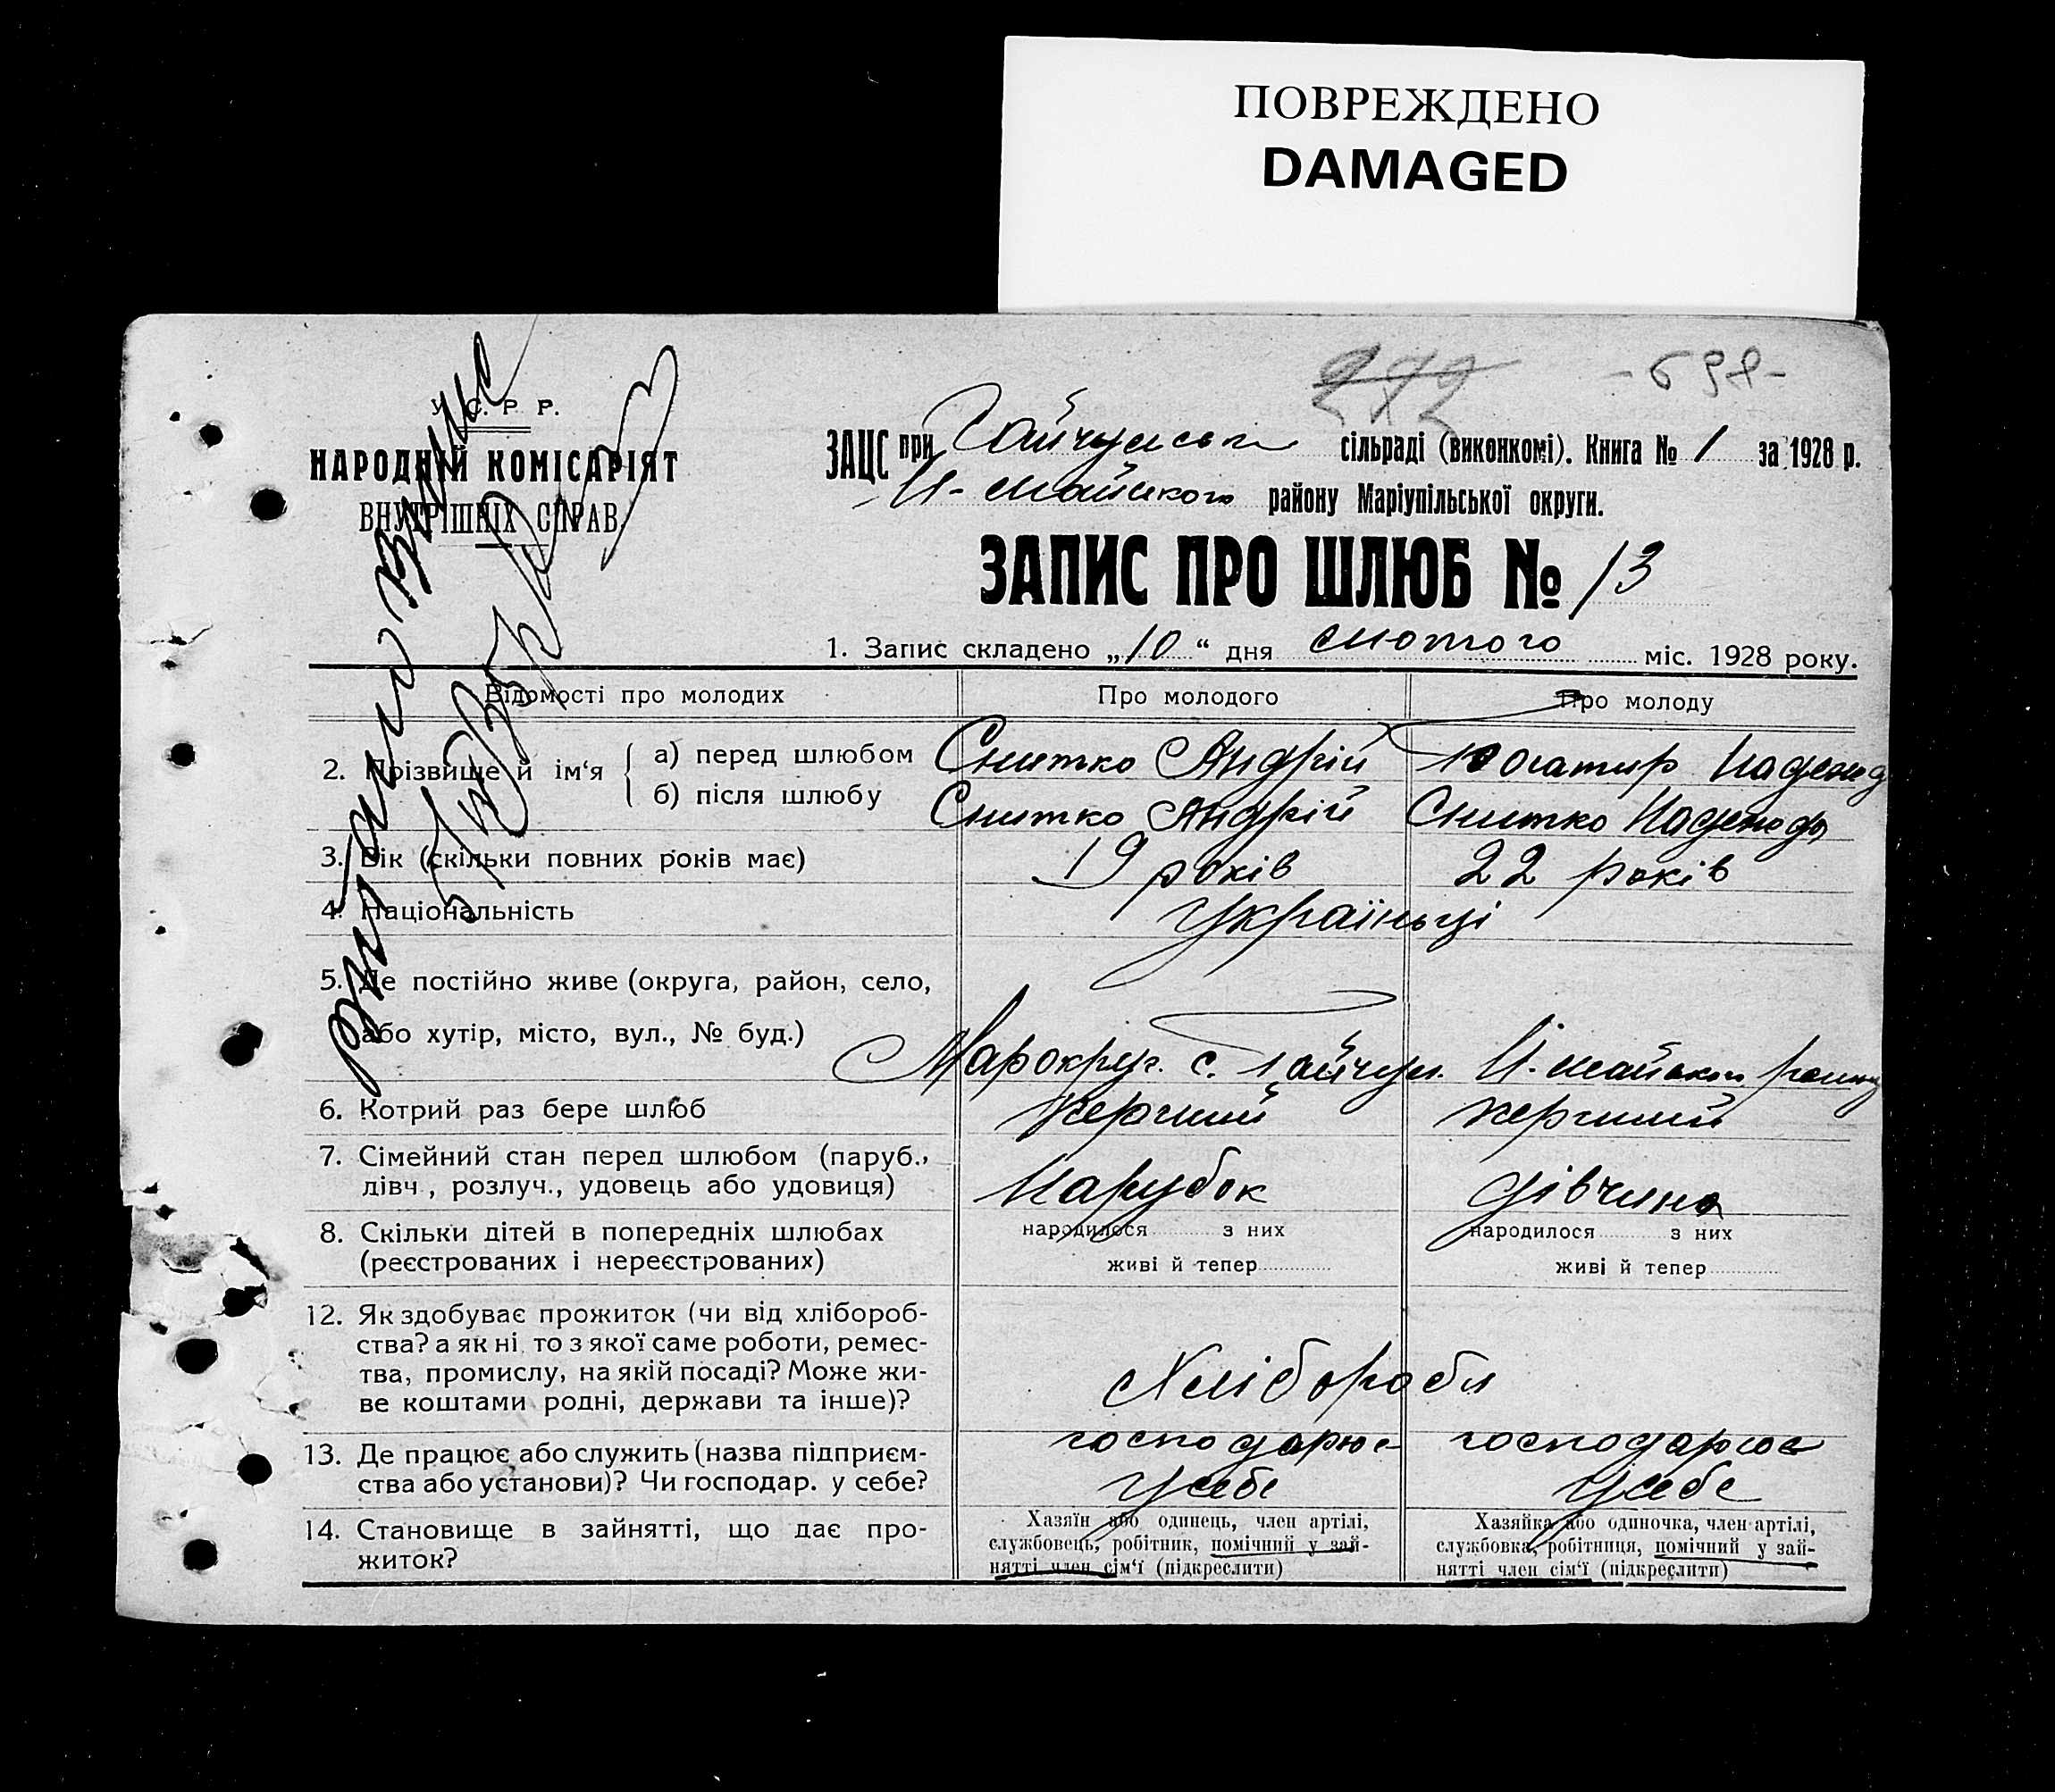 ПОВРЕЖДЕНО
DAMAGED
272
- 698 -
У. С. Р. Р.
НАРОДНІЙ КОМІСАРІЯТ
ВНУТРІШНІХ СПРАВ
ЗАЦС при Гайчулській сільраді (виконкомі). Книга № 1 за 1928 р.
П-майського району Маріупільської округи.
ЗАПИС ПРО ШЛЮБ № 13
1. Запис складено „10“ дня лютого міс. 1928 року.
Відомості про молодих
Про молодого
Про молоду
2. Прізвище й ім‘я
а) перед шлюбом Снитко Андрій Богатир Надежд
б) після шлюбу Снитко Андрій Снитко Надежда
3. Вік (скільки повних років має) 19 років 22 років
4. Національність Україньці
5. Де постійно живе (округа, район, село,
або хутір, місто, вул., № буд.)
Марокруг. с. Гайчул. П-майськ
6. Котрий раз бере шлюб перший перший
7. Сімейний стан перед шлюбом (паруб.,
дівч., розлуч., удовець або удовиця) Парубок дівчина
8. Скільки дітей в попередніх шлюбах народилося з них народилося з них
(реєстрованих і нереєстрованих) живі й тепер живі й тепер
12. Як здобуває прожиток (чи від хлібороб-
ства? а як ні то з якої саме роботи, ремес-
тва, промислу, на якій посаді? Може жи-
ве коштами родні, держави та інше)?
Хлібороби
13. Де працює або служить (назва підприєм- господарює господарює
ства або установи)? Чи господар. у себе? у себе у себе
14. Становище в зайнятті, що дає про-
житок?
Хазяїн або одинець, член артілі,
службовець, робітник, помічний у зай-
нятті член сім‘ї (підкреслити)
Хазяйка або одиночка, член артілі,
службовка, робітниця, помічний у зай-
нятті член сім‘ї (підкреслити)